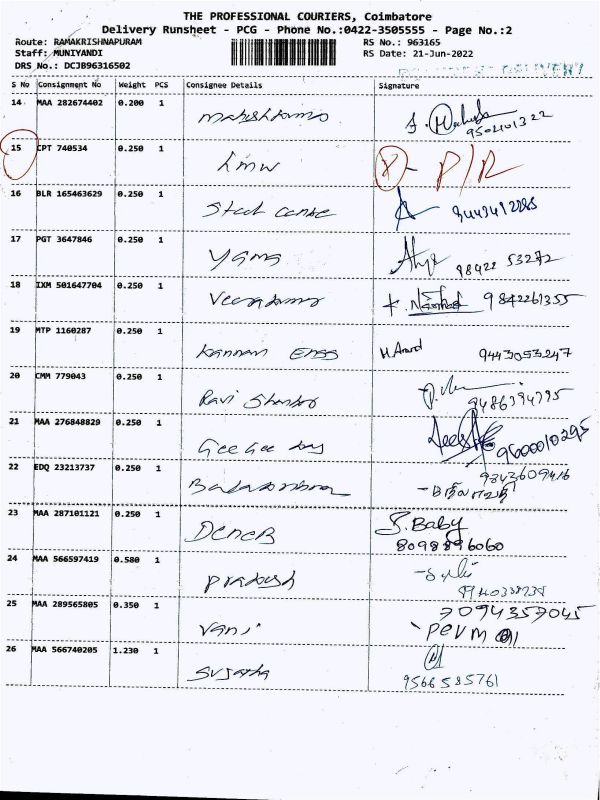 THE PROFESSIONAL COURIERS, Coimbatore
Delivery Runsheet - PCG - Phone No.:0422-3505555 - Page No.:2
Route: RAMAKRISHNAPURAM RS No.: 963165
Staff: MUNIYANDI RS Date: 21-Jun-2022
DRS No.: DCJB96316502 DELIVERY
S No Consignment No Weight PCS Consignee Details Signature
14 MAA 282674402 0.200 1
15 CPT 740534 0.250 1 Lmw P/R
16 BLR 165463629 0.250 1
17 PGT 3647846 0.250 1 98422 53272
18 IXM 501647704 0.250 1 9842261355
19 MTP 1160287 0.250 1 Kannan Engg M.Anand 9443053247
20 CMM 779043 0.250 1 Ravi Shankar 9486394795
21 MAA 276848829 0.250 1 Gee Gee 9600010295
22 EDQ 23213737 0.250 1 9843609416
23 MAA 287101121 0.250 1 S.Baby
8098896060
24 MAA 566597419 0.580 1 Prakash
25 MAA 289565805 0.350 1 Vani 7094357045
26 MAA 566740205 1.230 1 Sujatha
9566585761